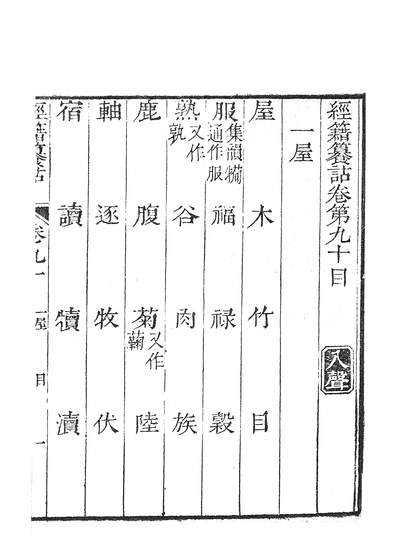 經籍籑詁卷第九十目 入聲
一屋
屋 木 竹 目
服集韻犕通作服 福 祿 穀
熟又作孰 谷 肉 族
鹿 腹 菊又作鞠 陸
軸 逐 牧 伏
宿 讀 犢 瀆
經籍籑詁 卷九十 一屋 目 一